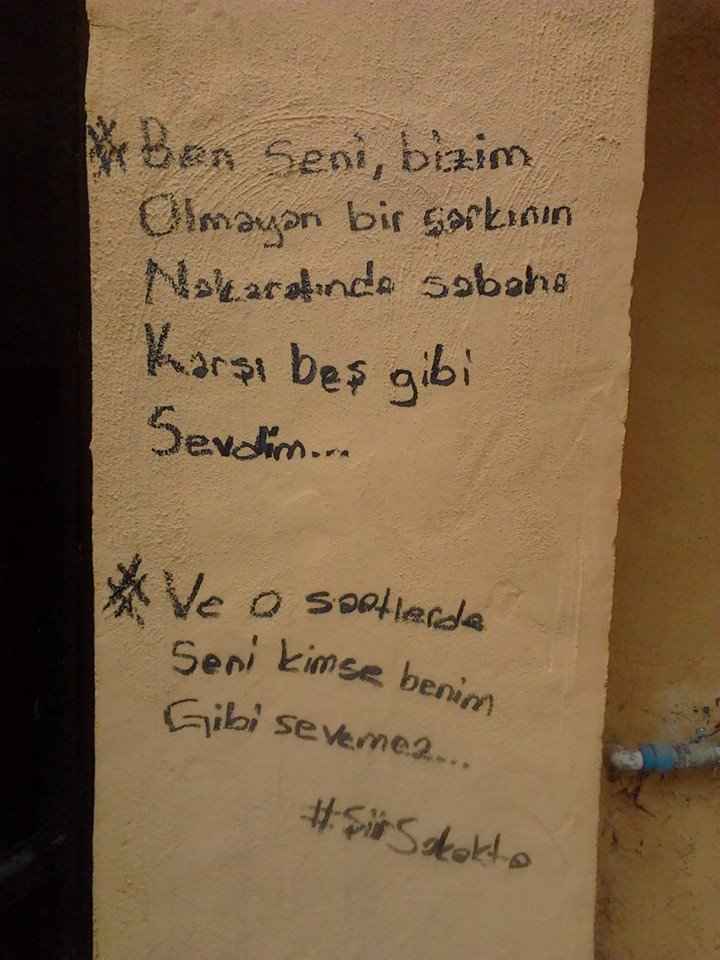 * Ben seni, bizim
Olmayan bir şarkının
Nakaratında sabaha
Karşı beş gibi
Sevdim...
* Ve o saatlerde
Seni kimse benim
Gibi sevemez...
#ŞiirSokakta